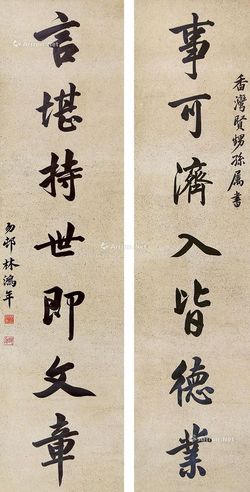 香灣賢甥孫属書
事可濟人皆德業
言堪持世即文章
勿邨林鴻年